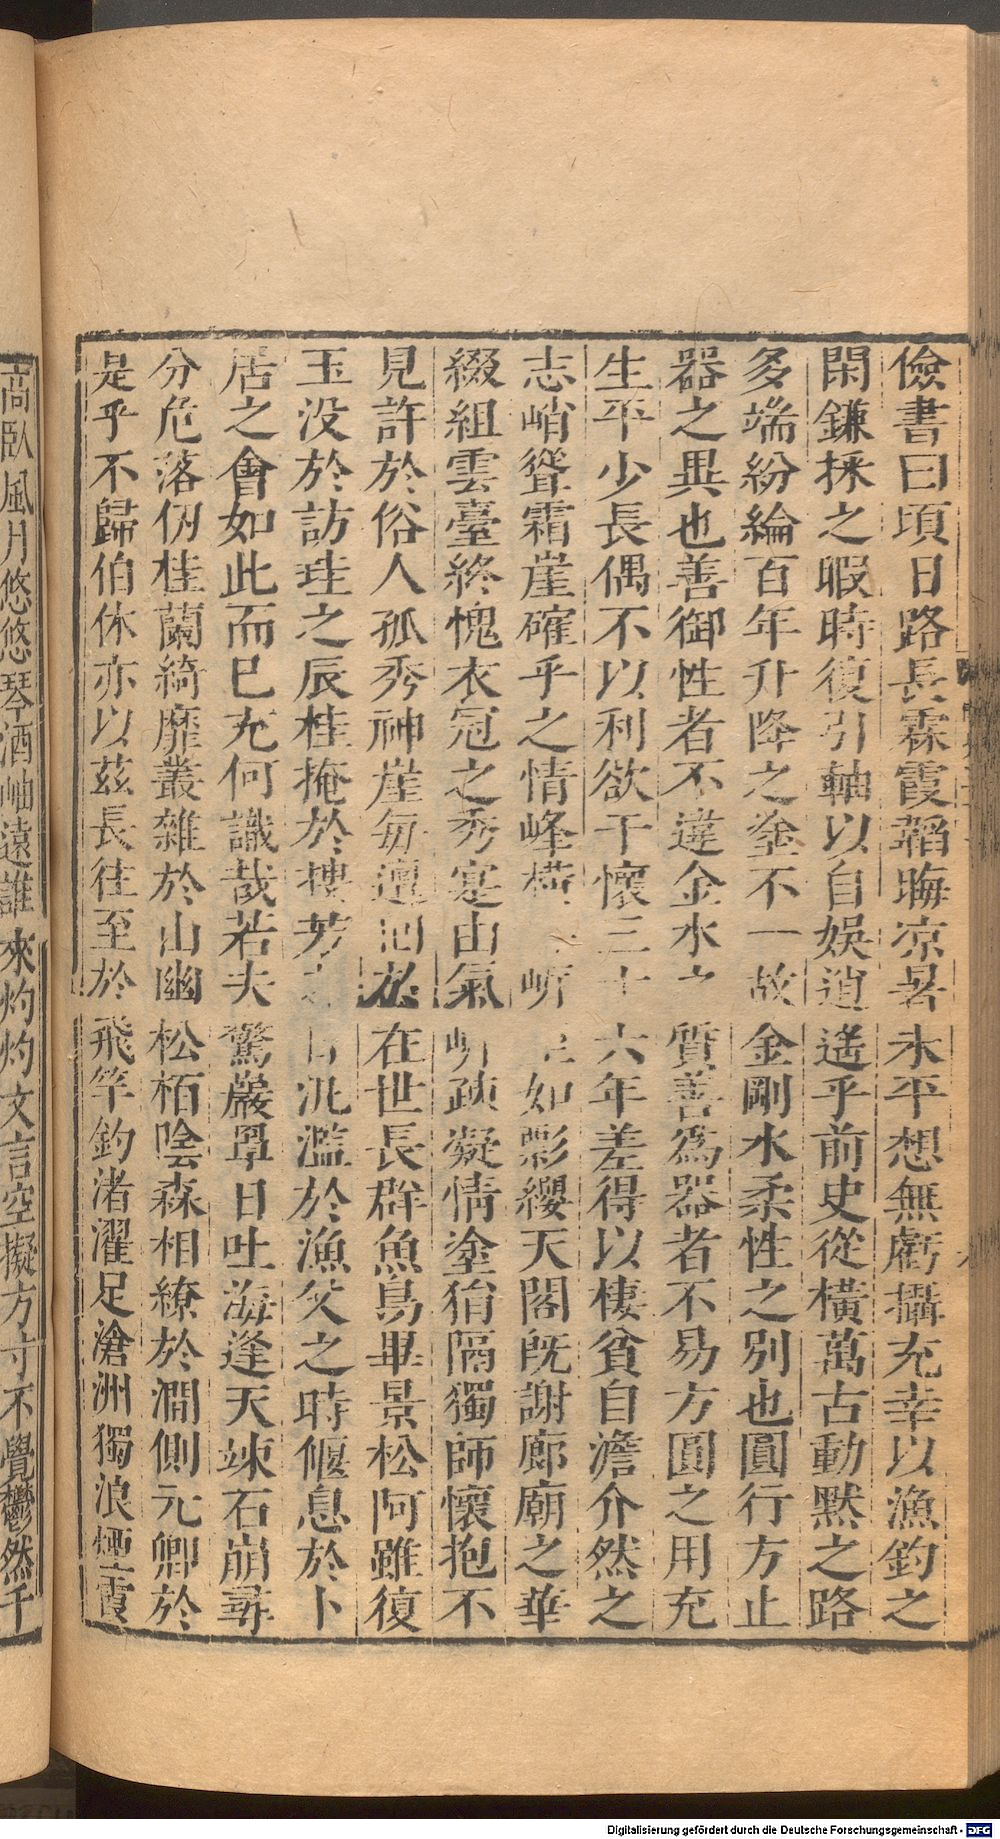 儉書曰頃日路長霖霞韜晦凉暑未平想無虧攝充幸以漁釣之
閑鎌採之暇時復引軸以自娛逍遙乎前史從橫萬古動默之路
多端紛綸百年升降之塗不一故金剛水柔性之別也圓行方止
器之異也善御性者不違金水之質善爲器者不易方圓之用充
生平少長偶不以利欲干懷三十六年差得以棲貧自澹介然之
志峭聳霜崖確乎之情峰橫 如影纓天閣既謝廊廟之華
綴組雲臺終愧衣冠之秀寔由氣岸疎凝情塗猾隔獨師懷抱不
見許於俗人孤秀神崖每邅回於在世長群魚鳥畢景松阿雖復
玉没於訪珪之辰桂掩於搜芳之 汎濫於漁父之時偃息於卜
居之會如此而已充何識哉若夫驚巖罩日吐海逢天竦石崩尋
分危落仞桂蘭綺靡叢雜於山幽松栢陰森相繚於澗側元卿於
是乎不歸伯休亦以茲長往至於飛竿釣渚濯足滄洲獨浪煙霞
高臥風月悠悠琴酒岫遠誰來灼灼文言空擬方寸不覺鬱然千
Digitalisierung gefördert durch die Deutsche Forschungsgemeinschaft - DFG